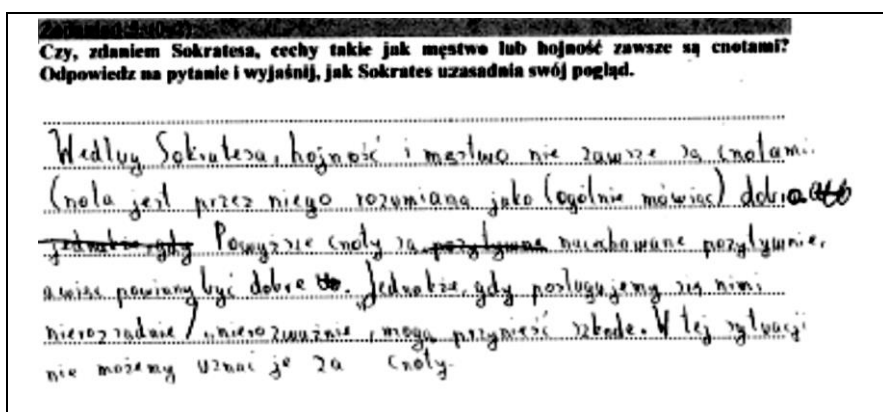 Czy, zdaniem Sokratesa, cechy takie jak męstwo lub hojność zawsze są cnotami?
Odpowiedz na pytanie i wyjaśnij, jak Sokrates uzasadnia swój pogląd.
Według Sokratesa, hojność i męstwo nie zawsze są cnotami.
Cnota jest przez niego rozumiana jako (ogólnie mówiąc) dobra
Powyższe cnoty są nacechowane pozytywnie,
a więc powinny być dobre. Jednakże, gdy posługujemy się nimi
nierozsądnie / nierozważnie, mogą przynieść szkodę. W tej sytuacji
nie możemy uznać je za cnoty.